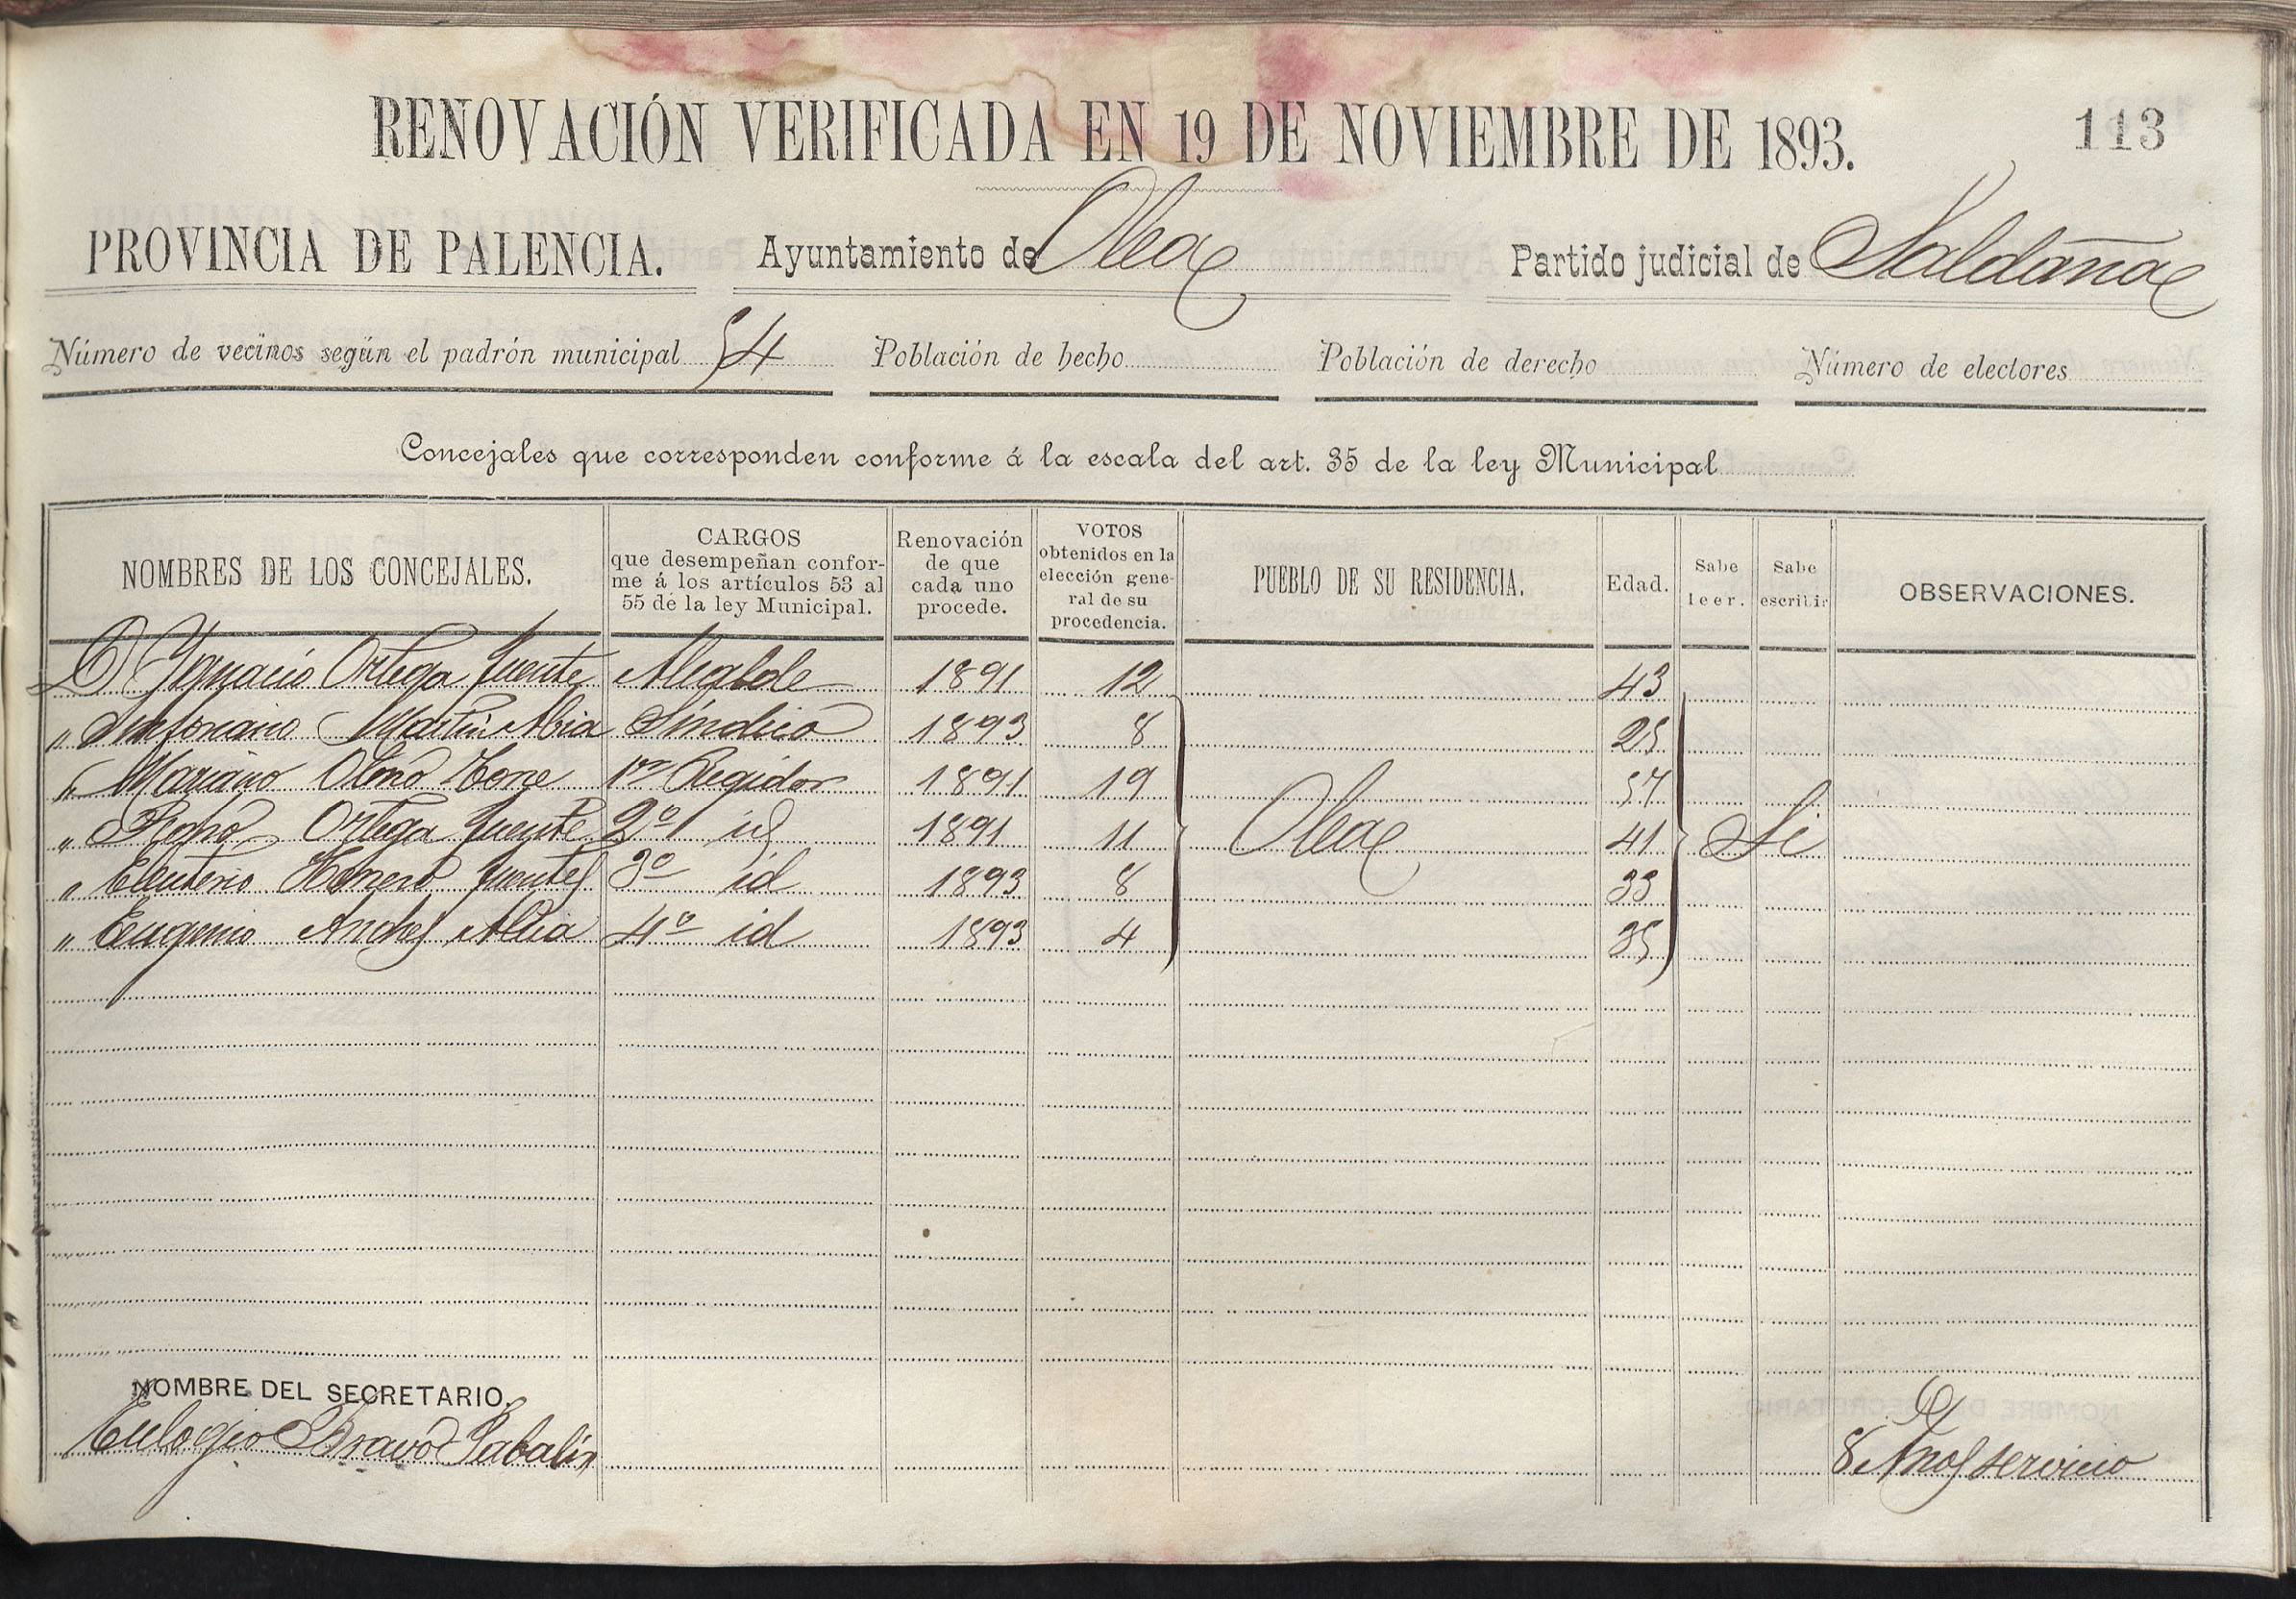 RENOVACIÓN VERIFICADA EN 19 DE NOVIEMBRE DE 1893. 113
PROVINCIA DE PALENCIA. Ayuntamiento de Olea Partido judicial de Saldaña
Número de vecinos según el padrón municipal 54 Población de hecho Población de derecho Número de electores
Concejales que corresponden conforme á la escala del art. 35 de la ley Municipal
NOMBRES DE LOS CONCEJALES. CARGOS que desempeñan conforme á los artículos 53 al 55 de la ley Municipal. Renovación de que cada uno procede. VOTOS obtenidos en la elección general de su procedencia. PUEBLO DE SU RESIDENCIA. Edad. Sabe leer. Sabe escribir OBSERVACIONES.
D Ygnacio Ortega fuente Alcalde 1891 12 43
" Sinforiano Martin Abia Síndico 1893 8 25
" Mariano 1er Regidor 1891 19 57
" Pedro Ortega fuente 2º id 1891 11 Olea 41 Si
" Eleuterio fuentes 3º id 1893 8 33
" Eugenio Andres Abia 4º id 1893 4 35
NOMBRE DEL SECRETARIO.
Eulogio Bravo 8 Años servicio